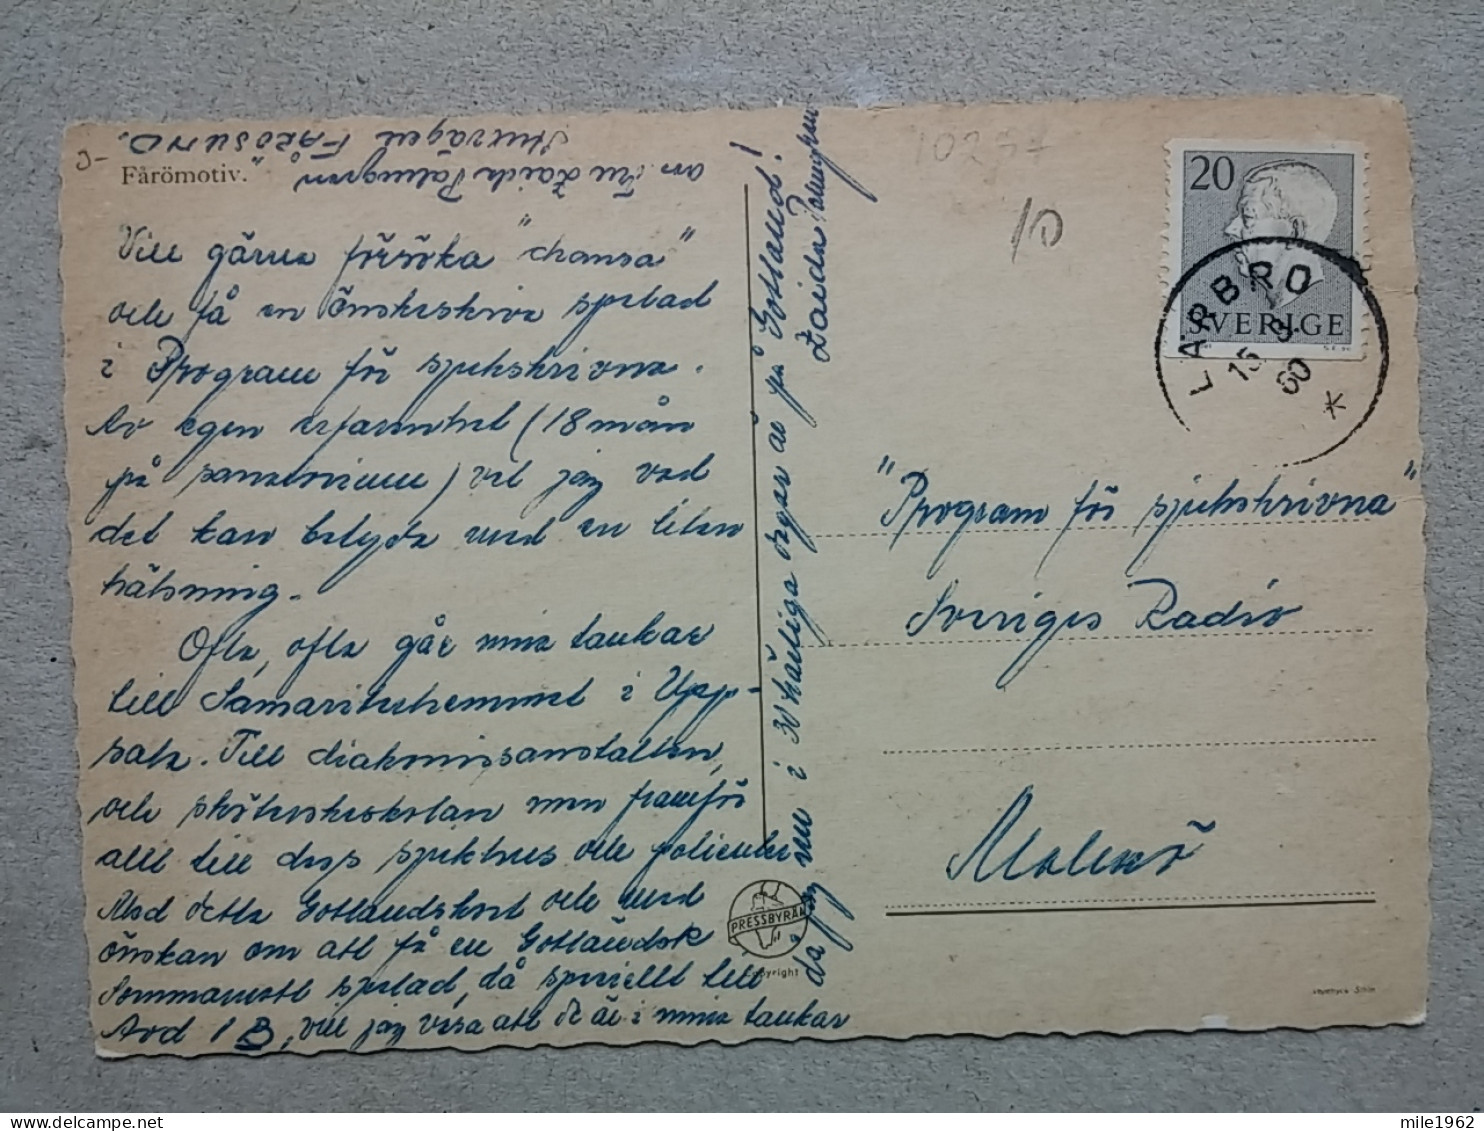 Fårömotiv.
av. Fru Zaida Palmgren
Sturvägen FÅRÖSUND.
Vill gärna försöka "chansa"
och få en önskeskiva spelad
i Program för sjukskrivna.
Av egen erfarenhet (18 mån
på sanatorium) vet jag vad
det kan betyda med en liten
hälsning.
Ofta, ofta går mina tankar
till Samariterhemmet i Upp-
sala. Till diakonissanstalten,
och sköterskeskolan men framför
allt till dess sjukhus och patienter
Med detta Gotlandskort och med
önskan om att få en Gotländsk
Sommarnatt spelad, då speciellt till
Avd 1 B, vill jag visa att de är i mina tankar
då jag nu i 30 härliga dagar är på Gotland!
Zaida Palmgren
PRESSBYRÅN
Copyright
10257
10
20
SVERIGE
LÄRBRO
15 3
60
"Program för sjukskrivna"
Sveriges Radio
Malmö
mile1962